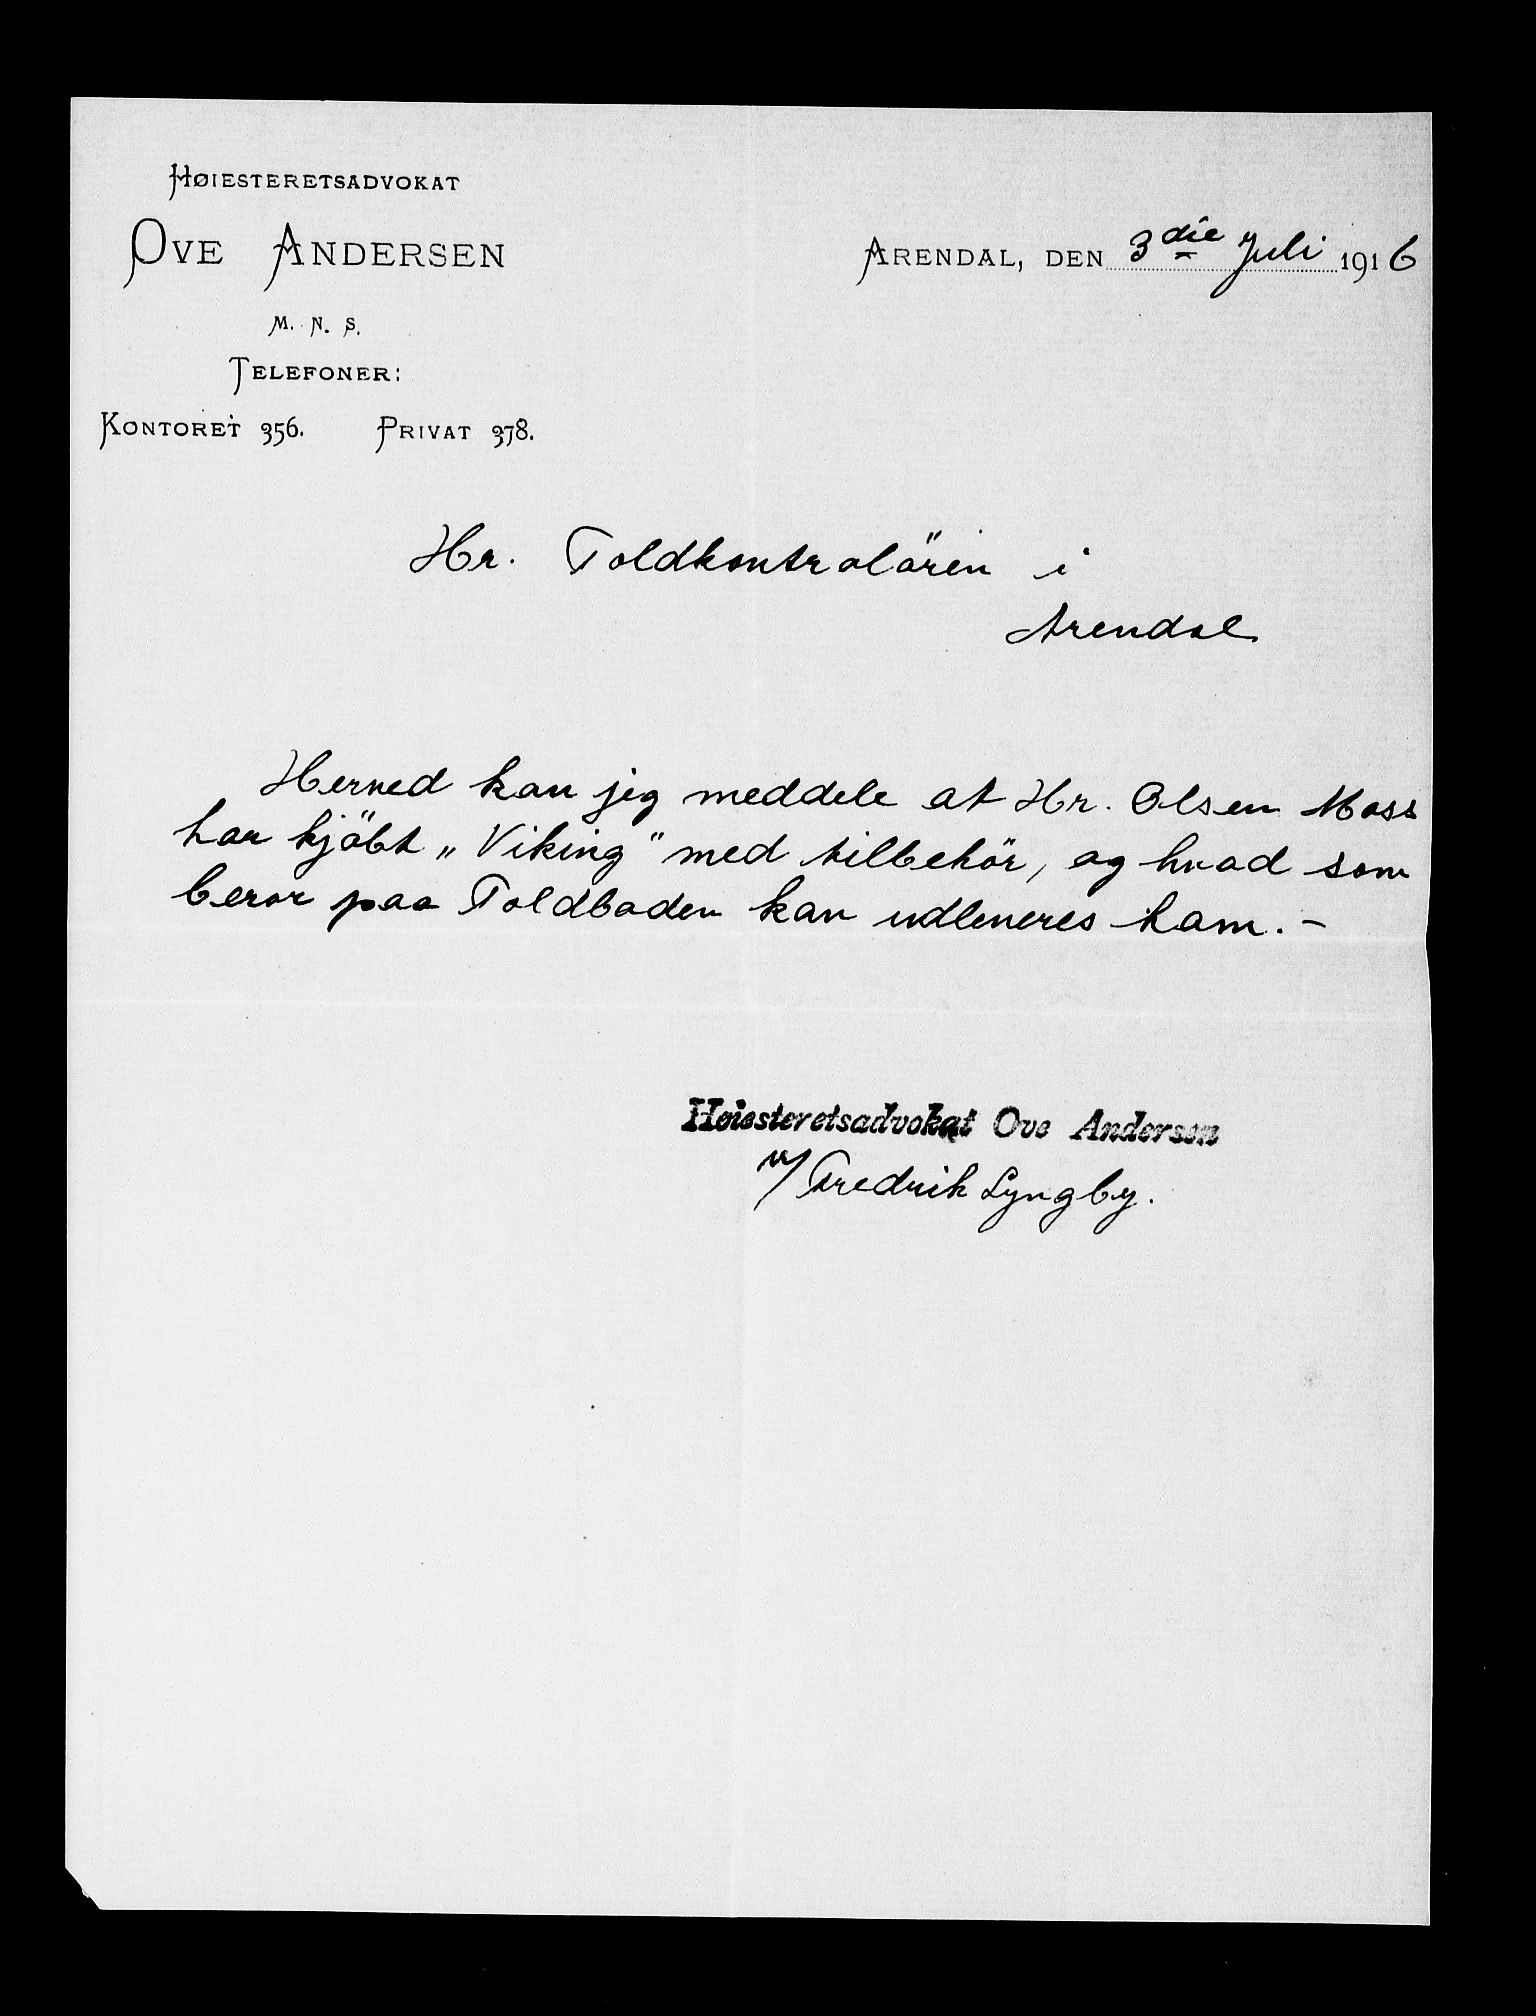 Høiesteretsadvokat
Ove Andersen
M. N. S.
Telefoner:
Kontoret 356. Privat 378.
Arendal, den 3die Juli 1916
Hr. Toldkontrolören i
Arendal
Herved kan jeg meddele at Hr. Olsen Moss
har kjöbt „Viking" med tilbehör, og hvad som
beror paa Toldboden kan udleveres ham. –
Høiesteretsadvokat Ove Andersen
v/ Fredrik Lyngby.